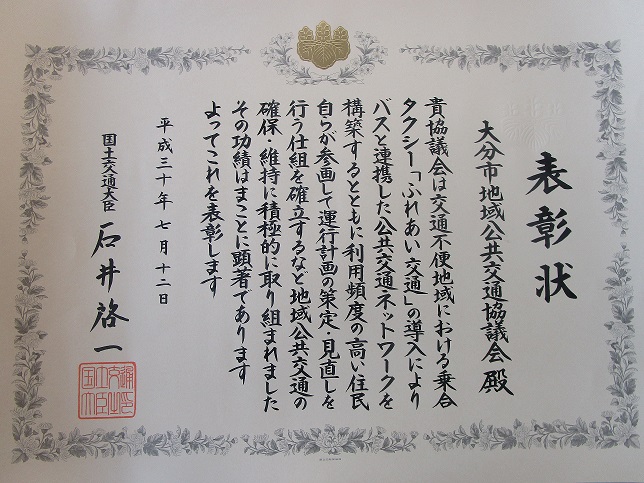 表彰状
大分市地域公共交通協議会 殿
貴協議会は交通不便地域における乗合
タクシー「ふれあい交通」の導入により
バスと連携した公共交通ネットワークを
構築するとともに利用頻度の高い住民
自らが参画して運行計画の策定・見直しを
行う仕組を確立するなど地域公共交通の
確保・維持に積極的に取り組まれました
その功績はまことに顕著であります
よってこれを表彰します
平成三十年七月十二日
国土交通大臣 石井啓一